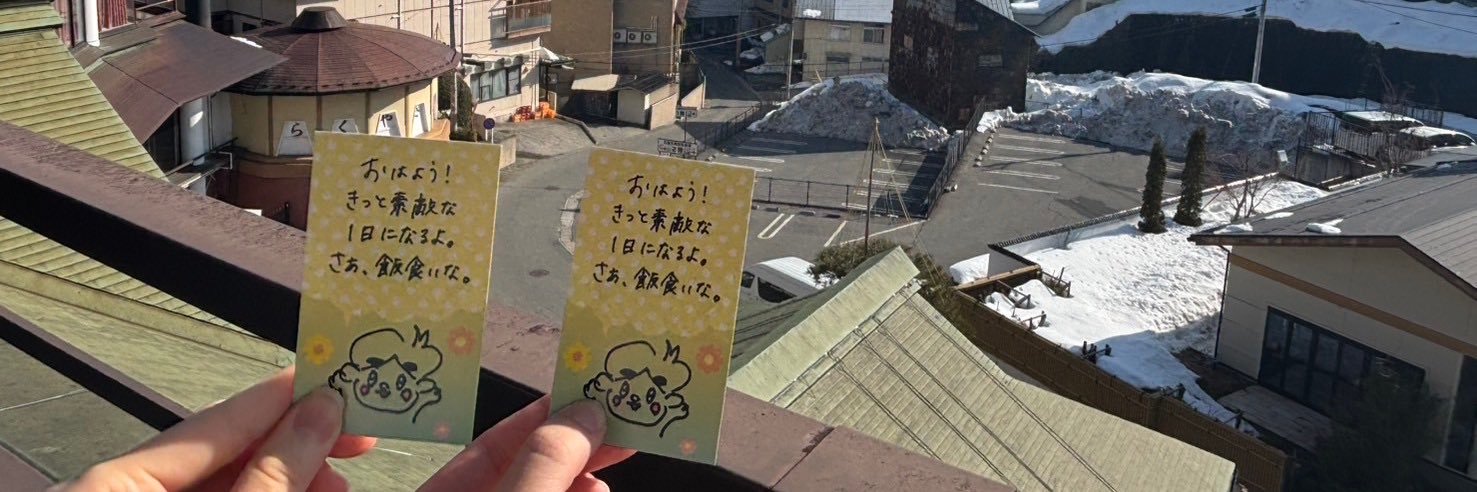 らくや
おはよう!
きっと素敵な
1日になるよ。
さあ、飯食いな。
おはよう!
きっと素敵な
1日になるよ。
さあ、飯食いな。